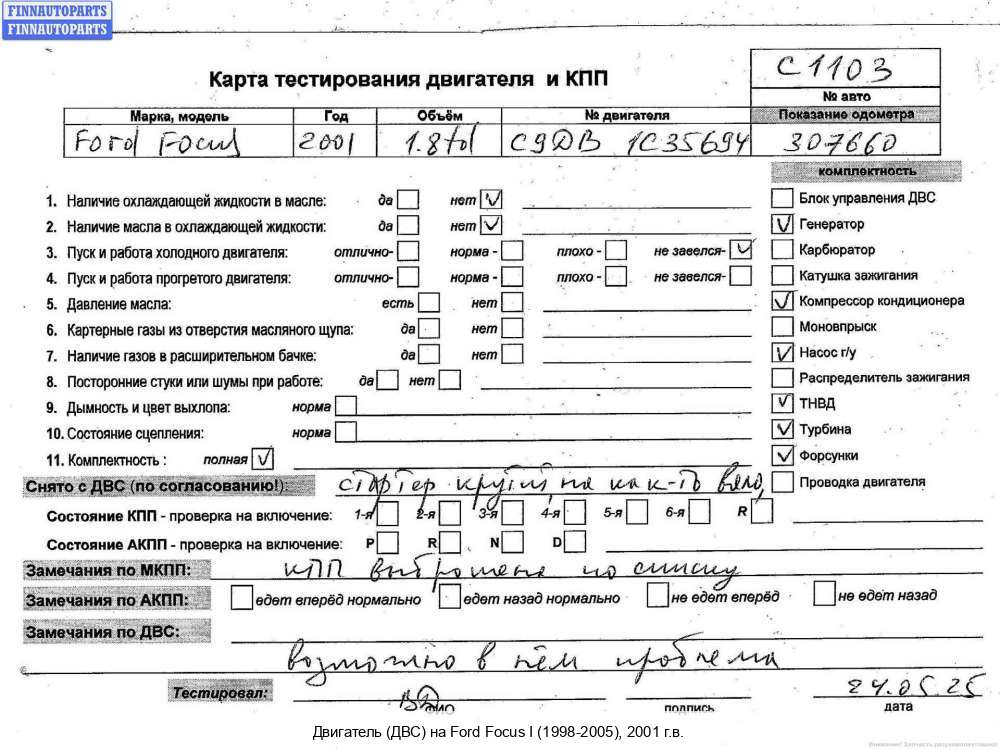 FINNAUTOPARTS
FINNAUTOPARTS
Карта тестирования двигателя и КПП
C1103
№ авто
Марка, модель Год Объём № двигателя Показание одометра
Ford Focus 2001 1.8td C9DB 1C35694 307660
комплектность
1. Наличие охлаждающей жидкости в масле: да нет Блок управления ДВС
2. Наличие масла в охлаждающей жидкости: да нет Генератор
3. Пуск и работа холодного двигателя: отлично- норма - плохо - не завелся- Карбюратор
4. Пуск и работа прогретого двигателя: отлично- норма - плохо - не завелся- Катушка зажигания
5. Давление масла: есть нет Компрессор кондиционера
6. Картерные газы из отверстия масляного щупа: да нет Моновпрыск
7. Наличие газов в расширительном бачке: да нет Насос г/у
8. Посторонние стуки или шумы при работе: да нет Распределитель зажигания
9. Дымность и цвет выхлопа: норма ТНВД
10. Состояние сцепления: норма Турбина
11. Комплектность : полная Форсунки
Снято с ДВС (по согласованию!) стартер крутит, но как-то вяло, Проводка двигателя
Состояние КПП - проверка на включение: 1-я 2-я 3-я 4-я 5-я 6-я R
Состояние АКПП - проверка на включение: P R N D
Замечания по МКПП: КПП выброшена по списку
Замечания по АКПП: едет вперёд нормально едет назад нормально не едет вперёд не едет назад
Замечания по ДВС:
возможно в нём проблема
Тестировал: ФИО подпись 24.05.25
дата
Двигатель (ДВС) на Ford Focus I (1998-2005), 2001 г.в.